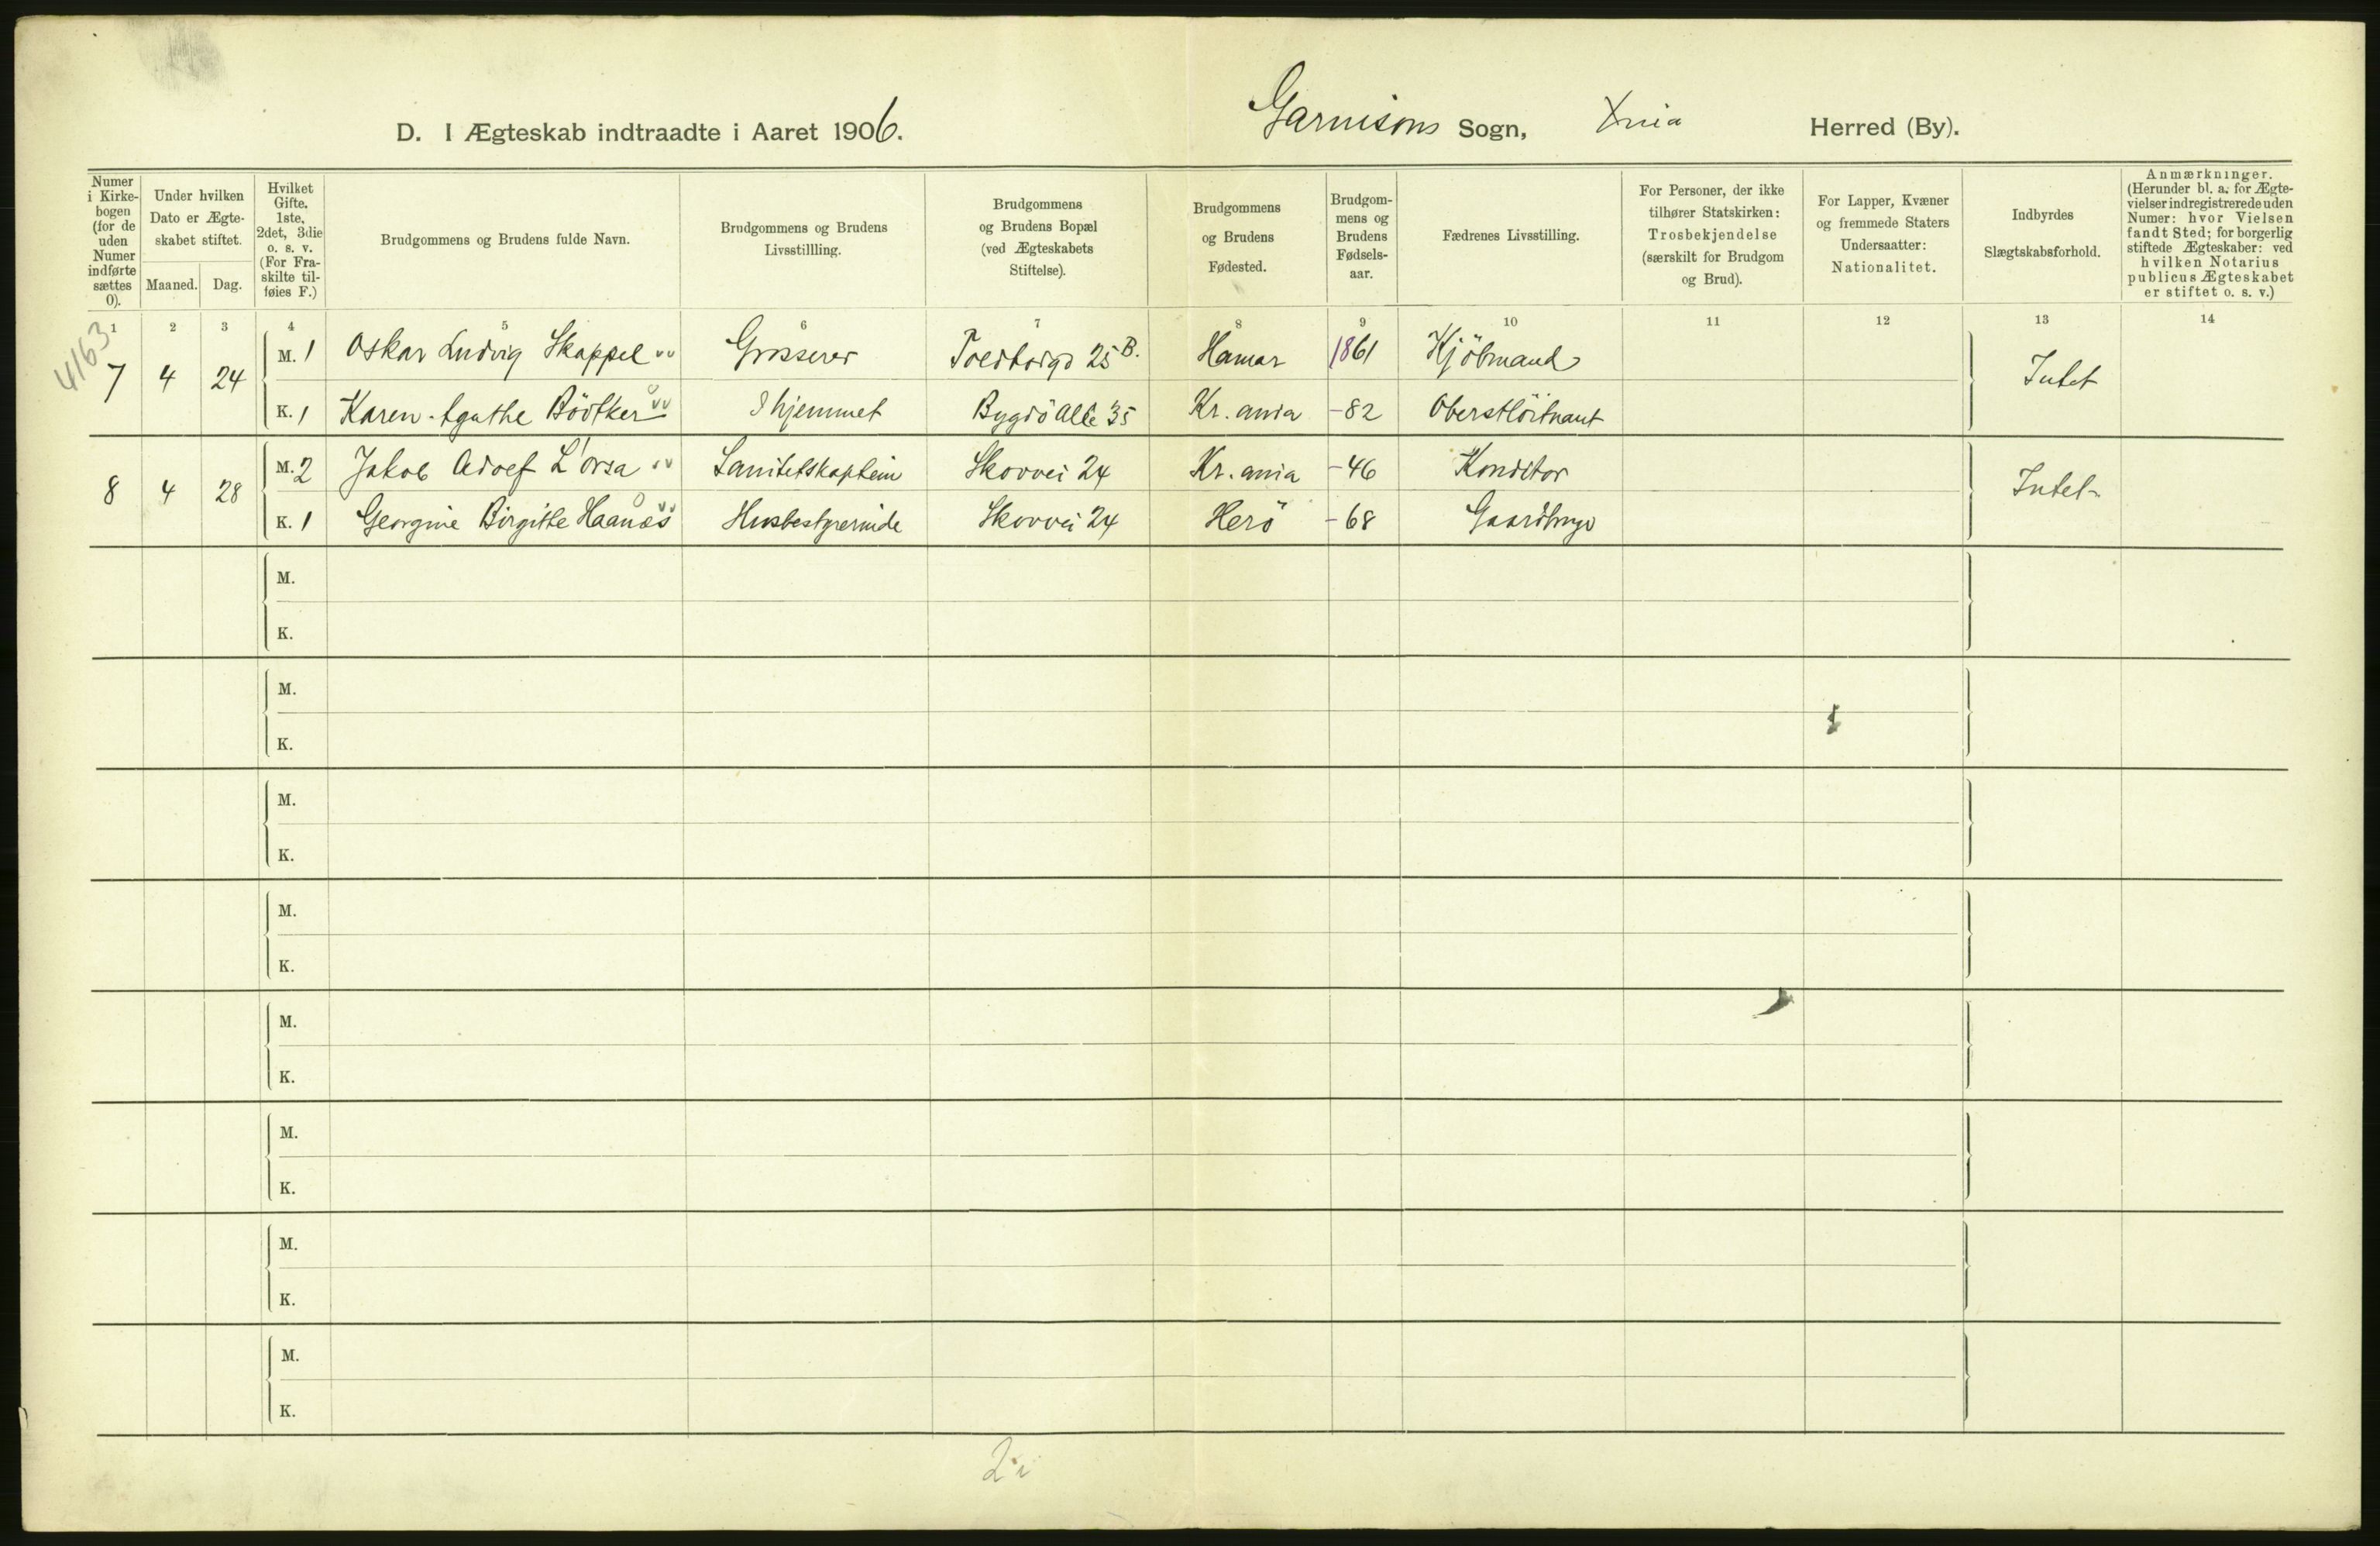 D. I Ægteskab indtraadte i Aaret 1906. Garnisons Sogn, Xnia Herred (By).
Numer i Kirkebogen (for de uden Numer indførte sættes 0).
Under hvilken Dato er Ægteskabet stiftet.
Maaned. Dag.
Hvilket Gifte. 1ste, 2det, 3die o. s. v. (For Fraskilte tilføies F.)
Brudgommens og Brudens fulde Navn.
Brudgommens og Brudens Livsstillling.
Brudgommens og Brudens Bopæl (ved Ægteskabets Stiftelse).
Brudgommens og Brudens Fødested.
Brudgommens og Brudens Fødselsaar.
Fædrenes Livsstilling.
For Personer, der ikke tilhører Statskirken: Trosbekjendelse (særskilt for Brudgom og Brud).
For Lapper, Kvæner og fremmede Staters Undersaatter: Nationalitet.
Indbyrdes Slægtskabsforhold.
Anmærkninger. (Herunder bl. a. for Ægtevielser indregistrerede uden Numer: hvor Vielsen fandt Sted; for borgerlig stiftede Ægteskaber: ved hvilken Notarius publicus Ægteskabet er stiftet o. s. v.)
1 2 3 4 5 6 7 8 9 10 11 12 13 14
4163
7 4 24 M. 1 Oskar Ludvig Skappel Grosserer Toldbodgd 25 B. Hamar 1861 Kjöbmand Intet
K. 1 Karen Agathe Bödtker I hjemmet Bygdö Alle 35 Kr.ania -82 Oberstlöitnant
8 4 28 M. 2 Jakob Adolf L'orsa Sanitetskaptein Skovvei 24 Kr.ania -46 Konditor Intet
K. 1 Georgine Birgitte Haanæs Husbestyrerinde Skovvei 24 Herö -68 Gaardbrugr
M.
K.
M.
K.
M.
K.
M.
K.
M.
K.
M.
K.
M.
K.
M.
K.